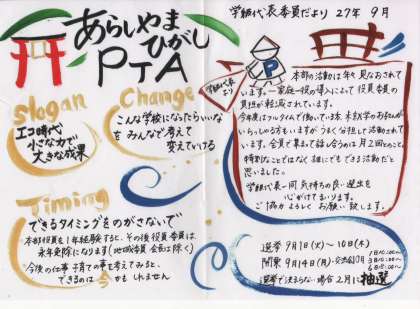 学級代表委員だより 27年 9月
あらしやま
ひがし
PTA
Slogan
エコ時代
小さな力で
大きな成果
Change
こんな学校になったらいいな
を みんなで考えて
変えていける
Timing
できるタイミングをのがさないで
本部役員を1年経験すると、その後 役員・委員は
永年免除になります(地域委員 会長は除く)
今後の仕事 子育ての事を考えてみると、
できるのは 今かも しれません
学級代表
より
P
本部の活動は年々見なおされて
います。一家庭一役の導入によって役員・委員の
負担が軽減されています。
今年度はフルタイムで働いている方、未就学のお子さんが
いらっしゃる方もいますがうまく分担して活動されて
います。会員で集まって話し合うのは月2回とのこと。
特別なことではなく誰にでもできる活動だと
思いました。
学級代表一同 気持ちの良い選出を
心がけてまいります。
ご協力よろしくお願い致します。
選挙 9月1日(火)〜10日(木)
開票 9月14日(月)
選挙で決まらない場合 2月に抽選